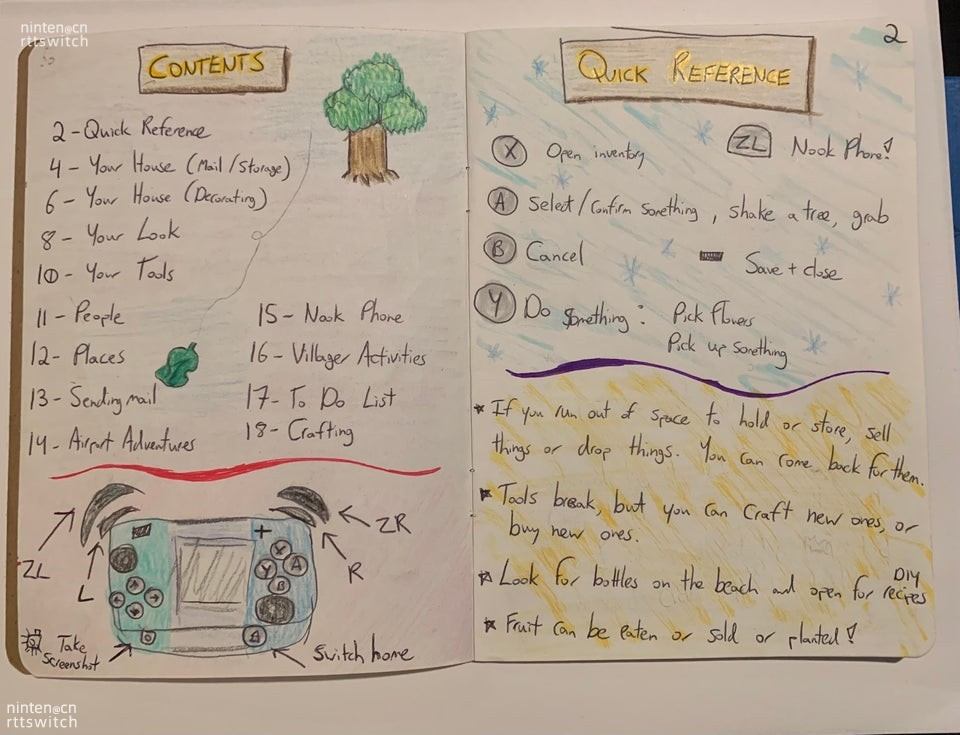 ninten@cn
rttswitch
CONTENTS
2 - Quick Reference
4 - Your House (Mail/Storage)
6 - Your House (Decorating)
8 - Your Look
10 - Your Tools
11 - People
12 - Places
13 - Sending mail
14 - Airport Adventures
15 - Nook Phone
16 - Villager Activities
17 - To Do List
18 - Crafting
ZL
L
ZR
R
+
X
Y
A
B
Take
Screenshot
Switch home
2
QUICK REFERENCE
X Open inventory
ZL Nook Phone!
A Select/Confirm Something, shake a tree, grab
B Cancel
- Save + close
Y Do Something: Pick flowers
Pick up Something
★ If you run out of space to hold or store, sell
things or drop things. You can come back for them.
★ Tools break, but you can Craft new ones, or
buy new ones.
★ Look for bottles on the beach and open for DIY
recipes
★ Fruit can be eaten or sold or planted!
ninten@cn
rttswitch